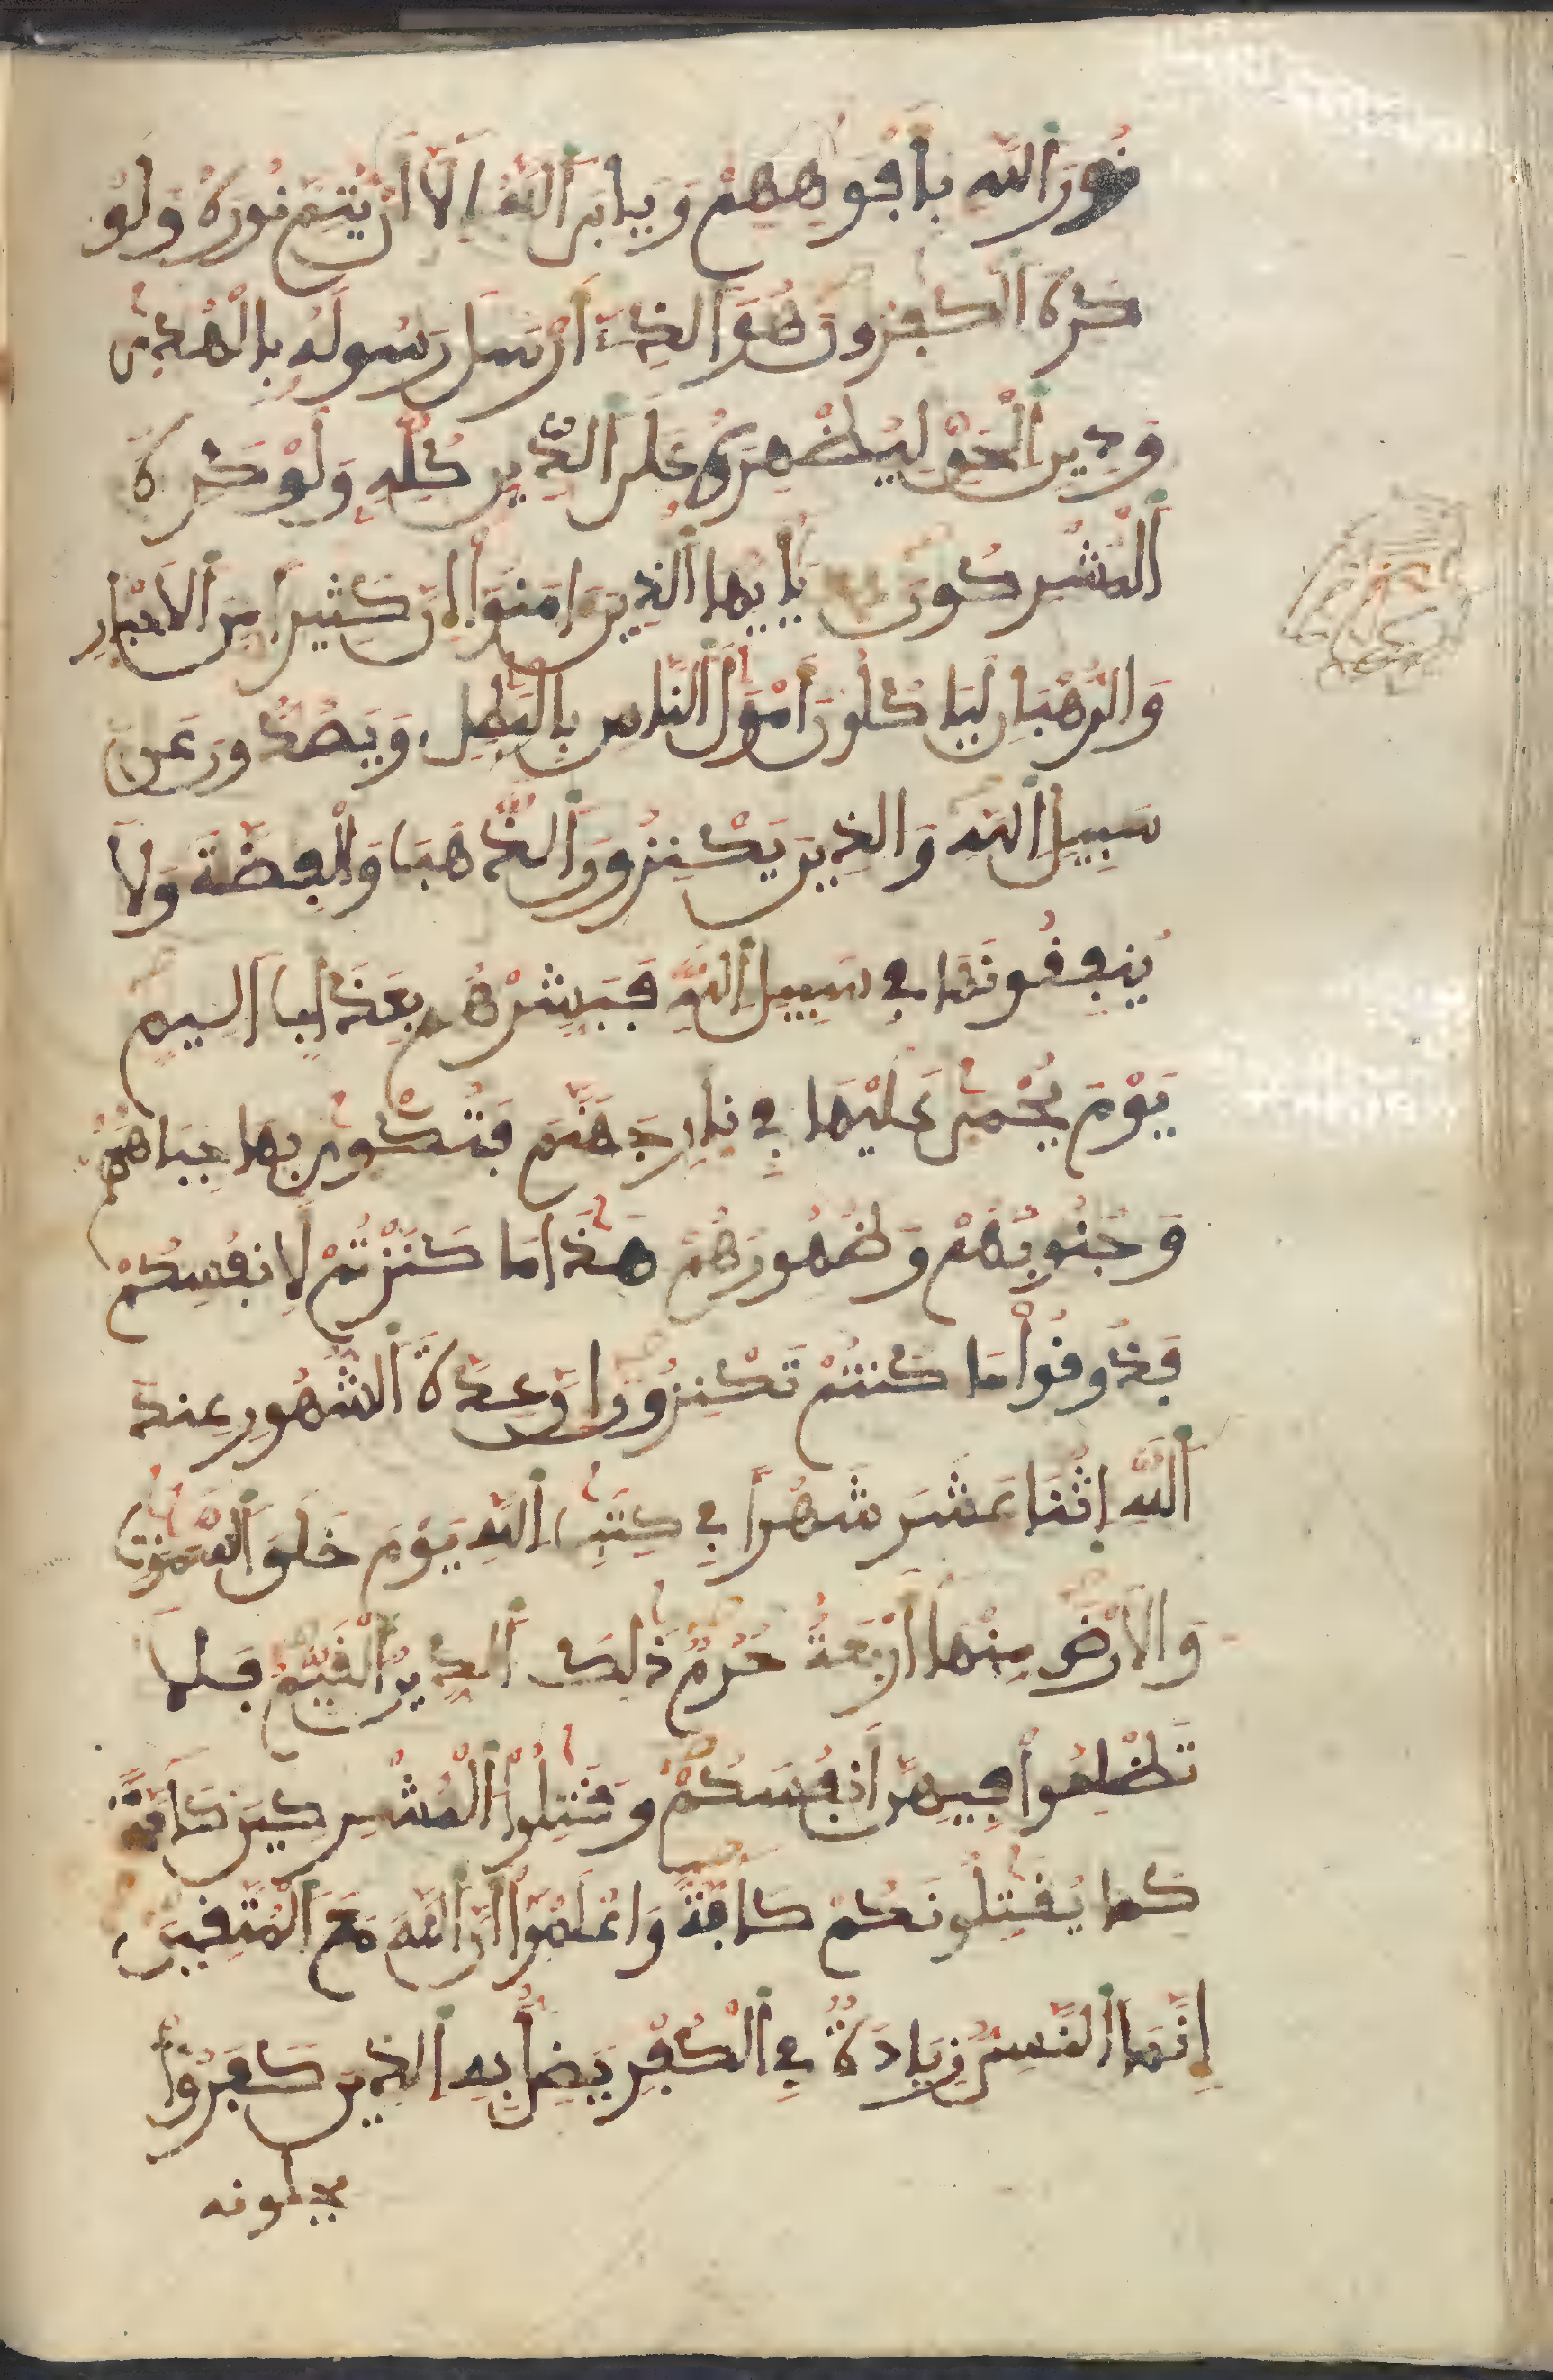 نُورَ اَللَّهِ بِأَفْوَهِهِمْ وَيَابَى اَللَّهُ إِلَّا أَنْ يُّتِمَّ نُورَهُ وَلَوْ
كَرِهَ اَلْكَٰفِرُونَ هُوَ اَلذِے أَرْسَلَ رَسُولَهُ بِالْهُدَىٰ
وَدِينِ اِلْحَقِّ لِيُظْهِرَهُ عَلَى اَلدِّينِ كُلِّهِ وَلَوْ كَرِهَ
اَلْمُشْرِكُونَ يَٰأَيُّهَا اَلذِينَ ءَامَنُوا إِنَّ كَثِيراً مِّنَ اَلَاحْبِارِ
وَالرُّهْبَانِ لَيَاكُلُونَ أَمْوَٰلَ اَلنَّاسِ بِالْبَٰطِلِ وَيَصُدُّونَ عَن
سَبِيلِ اِللَّهِ وَالذِينَ يَكْنِزُونَ اَلذَّهَبَ وَالْفِضَّةَ وَلَا
يُنفِقُونَهَا فِے سَبِيلِ اِللَّهِ فَبَشِّرْهُم بِعَذَابٍ اَلِيمٍ
يَوْمَ يُحْمَىٰ عَلَيْهَا فِے نِارِ جَهَنَّمَ فَتُكْوَىٰ بِهَا جِبَاهُهُمْ
وَجُنُوبُهُمْ وَظُهُورُهُمْ هَٰذَا مَا كَنَزْتُمْ لِأَنفُسِكُمْ
فَذُوقُوا مَا كُنتُمْ تَكْنِزُونَ إِنَّ عِدَّةَ اَلشُّهُورِ عِندَ
اَللَّهِ اِثْنَا عَشَرَ شَهْراً فِے كِتَٰبِ اِللَّهِ يَوْمَ خَلَقَ اَلسَّمَٰوَٰتِ
وَالَارْضَ مِنْهَا أَرْبَعَةٌ حُرُمٌ ذَٰلِكَ اَلدِّينُ اُلْقَيِّمُ فَلَا
تَظْلِمُوا فِيهِنَّ أَنفُسَكُمْ وَقَٰتِلُوا اُلْمُشْرِكِينَ كَآفَّةً
كَمَا يُقَٰتِلُونَكُمْ كَآفَّةً وَاعْلَمُوا أَنَّ اَللَّهَ مَعَ اَلْمُتَّقِينَ
إِنَّمَا اَلنَّسِىُّ زِيَادَةٌ فِے اِلْكُفْرِ يَضِلُّ بِهِ اِلذِينَ كَفَرُوا
يحلونه